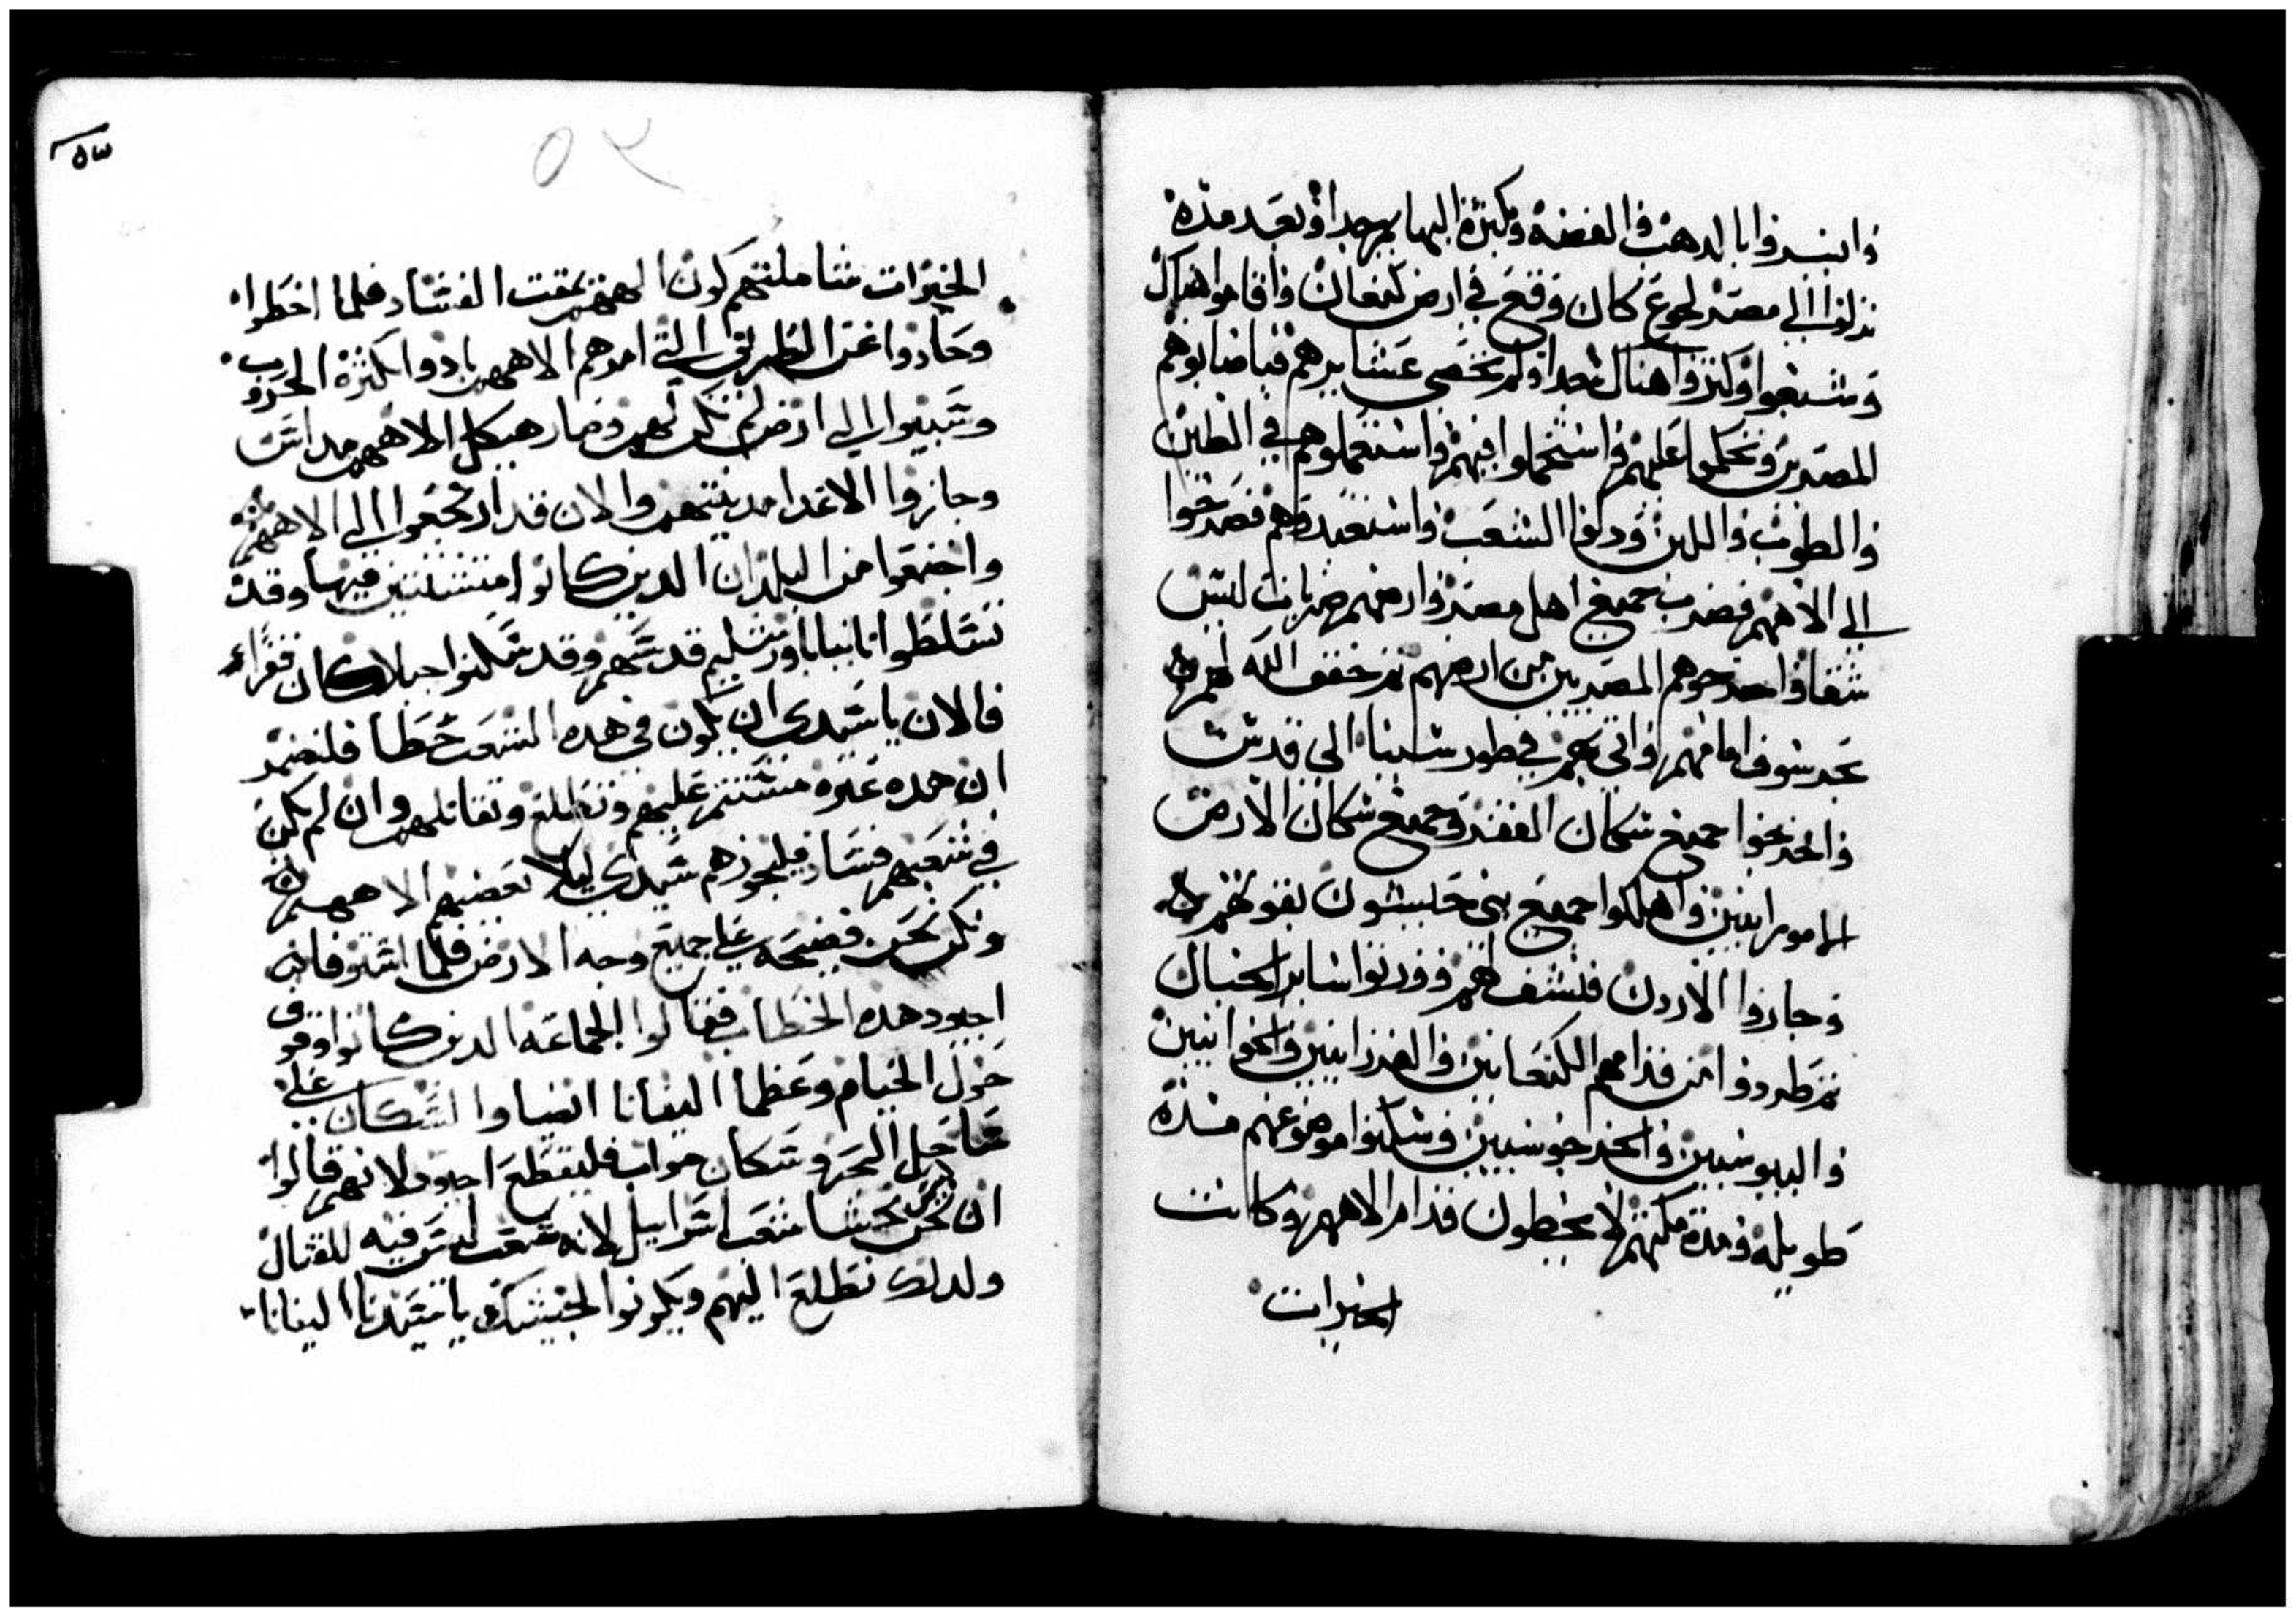 وايسروا بالدهب والفضه وبكثرة البهايم جدا وبعد مده
نزلوا الي مصر لجوع كان وقع في ارض كنعان واقاموا هناك
وشبعوا وكثروا هناك جدا ولم تحصي عشايرهم فباضابوهم
المصريين وتحكموا عليهم واستحملوا فيهم واستعملوهم في الطين
والطوب واللبن ودلوا الشعب واستعبدوهم فصرخوا
الي الاههم فضرب جميع اهل مصر وارضهم ضربات ليس
شفا واخرجوهم المصريين من ارضهم ثم خفف الله لهم
بحر سوف امامهم واتي بهم في طور سينا الي قدس
واخرجوا جميع سكان القفر وجميع سكان الارض
الامورانيين واهلكوا جميع بني حسبون بقوتهم
وجازوا الاردن فلشف لهم وورتوا ساير الجبال
ثم طردوا من قدامهم الكنعانيين والفرزانيين والحوانيين
واليبوسيين والجرجوسيين وسكنوا موضوعهم مدة
طويله ومدة مكنهم لا يخطون قدام الاههم وكانت
الخيرات
٥٣
٥٢
الخيرات شاملتهم كون الههم يمقت الفساد فلما اخطوا
وحادوا عن الطريق التي امرهم الاههم بادوا بكثرة الحروب
وسبيوا الي ارض لم تكن لهم وصار هيكل الاههم مداس
وحازوا الاعدا مدينتهم والان قد ارتجعوا الي الاههم
واجتمعوا من البلدان الدين كانوا متشتتين فيها وقد
تسلطوا تانيا باورشليم قدسهم وقد سكنوا جبلا كان فقراء
فالان يا سيدي ان يكون في هده الشعب خطا فلنضمر
ان هده عتره ستتم عليهم ونطلع ونقاتلهم وان لم يكن
في شعبهم فساد فليجوزهم سيدي ليلا يعضيهم الاههم
ونكن نحن فضيحه علي جميع وجه الارض فلما استوفا
اجيود هده الخطاب فقالوا الجماعه الدين كانوا وقوف
حول الخيام وعظما اليفانا ايضا والسكان علي
ساحل البحر وسكان مواب فليقطع اجيود لانهم قالوا
ان نحن نخشا شعب اسراييل لانه شعب ليس فيه للقتال
ولدلك نطلع اليهم ويكونوا لجيشك يا سيدنا اليفانا